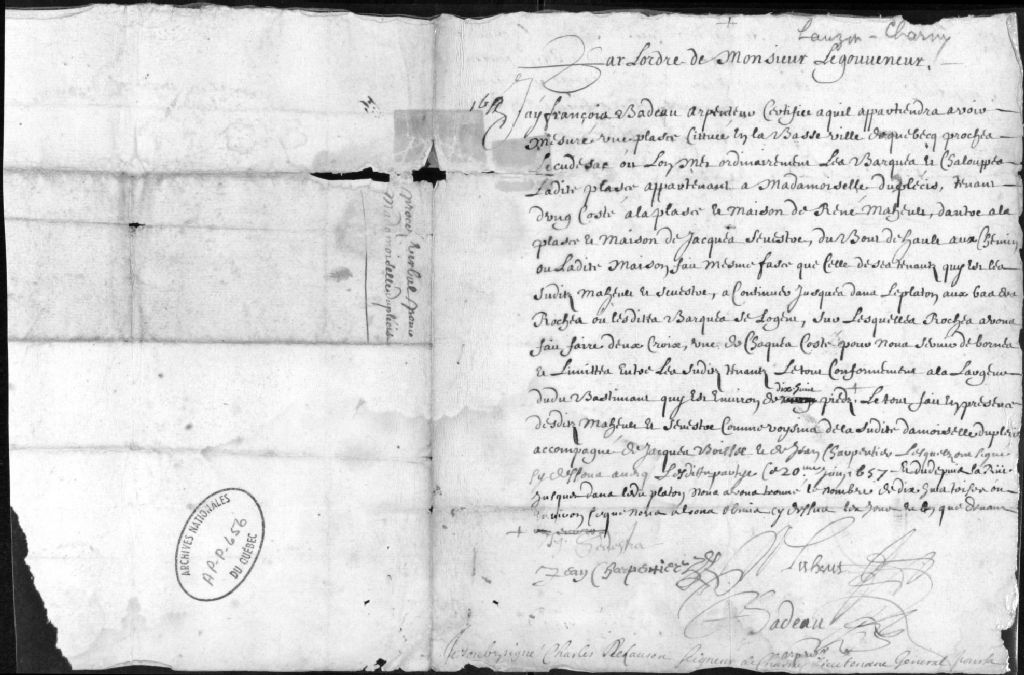 Lauzon - Charny
Par Lordre de Monsieur Legouveneur.
1657
Jay françois Badeau arpenteur Certifie aquil appartiendra avoir
Mesuré une plasce Cituée En la Basse ville de quebecq proches
Lecudesac ou Lon Met ordinairement Les Barques & Chalouppes
Ladite plasce appartenant a Madamoiselle duplecis, tenant
dung Costé ala plasce & Maison de René Maheult, dautre ala
plasce & Maison de Jacques Sevestre, du Bout de hault aux Chemin
ou Ladite Maison fait mesme fasce que Celle de ses tenantz quy est les
Suditz Maheult & Sevestre, a Continuer Jusques dans Leplaton aux bas des
Roches ou lesdittes Barques se Logent, Sur Lesquelles Roches avons
fait faire deux Croix, une de Chaques Costé pour Nous Servir de bornes
& Limittes Entre Les Suditz tenantz Letout Conformement ala Largeur
dudit Bastimant quy Est Environ de dix huict piedz. Le tout fait En presence
desditz Maheult & Sevestre Comme voysins de la Sudite damoiselle duplecis
accompagné de Jacques Boissel & de Jean Charpentier Lesquelz ont signé
cy dessous avecq Lesdittes partyes Ce 20me Juin 1657 & du depuis la Rüe
Jusques dans ledit platon Nous avons trouvé le nombre de dix huit toises ou
Environ Ce que nous avions obmis cy dessus les Jour & En que devant
J. Sevestre
Jean Charpentier
R Maheut
Badeau
arpenteur
Je soubzsigné Charles De Lauson Seigneur de Charny Lieutenant General pour le
procez verbal pour
Madamoiselle duplécis
ARCHIVES NATIONALES
AP-P-656
DU QUÉBEC